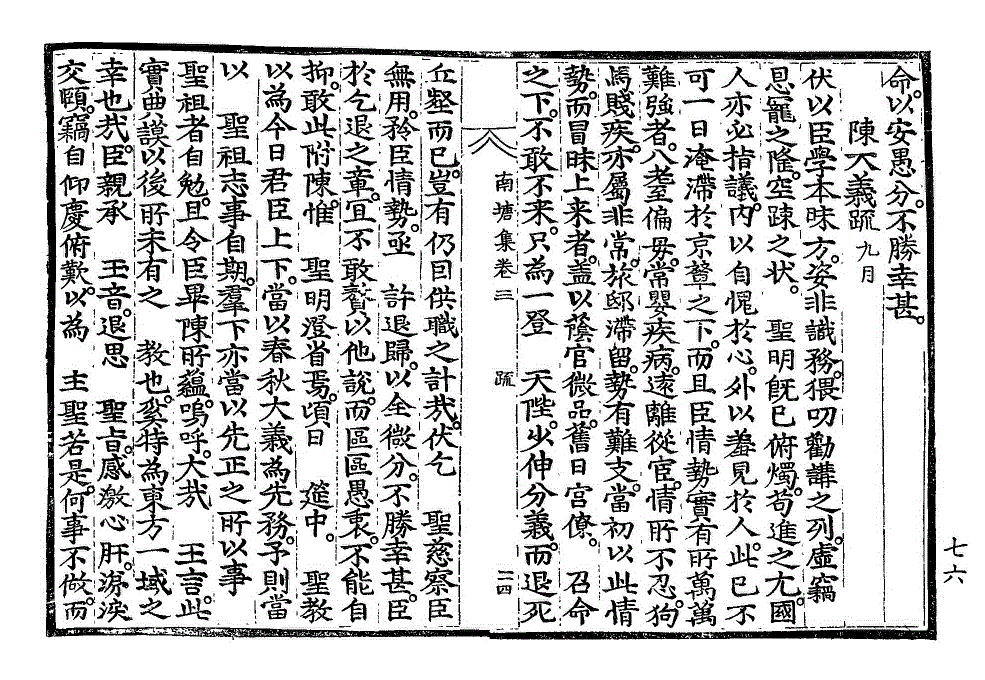 命。以安愚分。不勝幸甚。
陳大義疏 九月
伏以臣學本昧方。姿非識務。猥叨勸講之列。虛竊
恩寵之隆。空疎之狀。 聖明旣已俯燭。苟進之尤。國
人亦必指議。內以自愧於心。外以羞見於人。此已不
可一日淹滯於京輦之下。而且臣情勢。實有所萬萬
難強者。八耋偏母。常嬰疾病。遠離從宦。情所不忍。狗
馬賤疾。亦屬非常。旅邸滯留。勢有難支。當初以此情
勢。而冒昧上來者。蓋以蔭官微品。舊日宮僚。 召命
之下。不敢不來。只為一登 天陛。少伸分義。而退死
南塘集卷三 疏 二四
丘壑而已。豈有仍因供職之計哉。伏乞 聖慈察臣
無用。矜臣情勢。亟 許退歸。以全微分。不勝幸甚。臣
於乞退之章。宜不敢贅以他說。而區區愚衷。不能自
抑。敢此附陳。惟 聖明澄省焉。頃日 筵中。 聖教
以為今日君臣上下。當以春秋大義為先務。予則當
以 聖祖志事自期。羣下亦當以先正之所以事
聖祖者自勉。且令臣畢陳所蘊。嗚呼。大哉 王言。此
實典謨以後所未有之 教也。奚特為東方一域之
幸也哉。臣親承 玉音。退思 聖旨。感激心肝。淚淚
交頤。竊自仰慶俯歎。以為 主聖若是。何事不做。而
七六